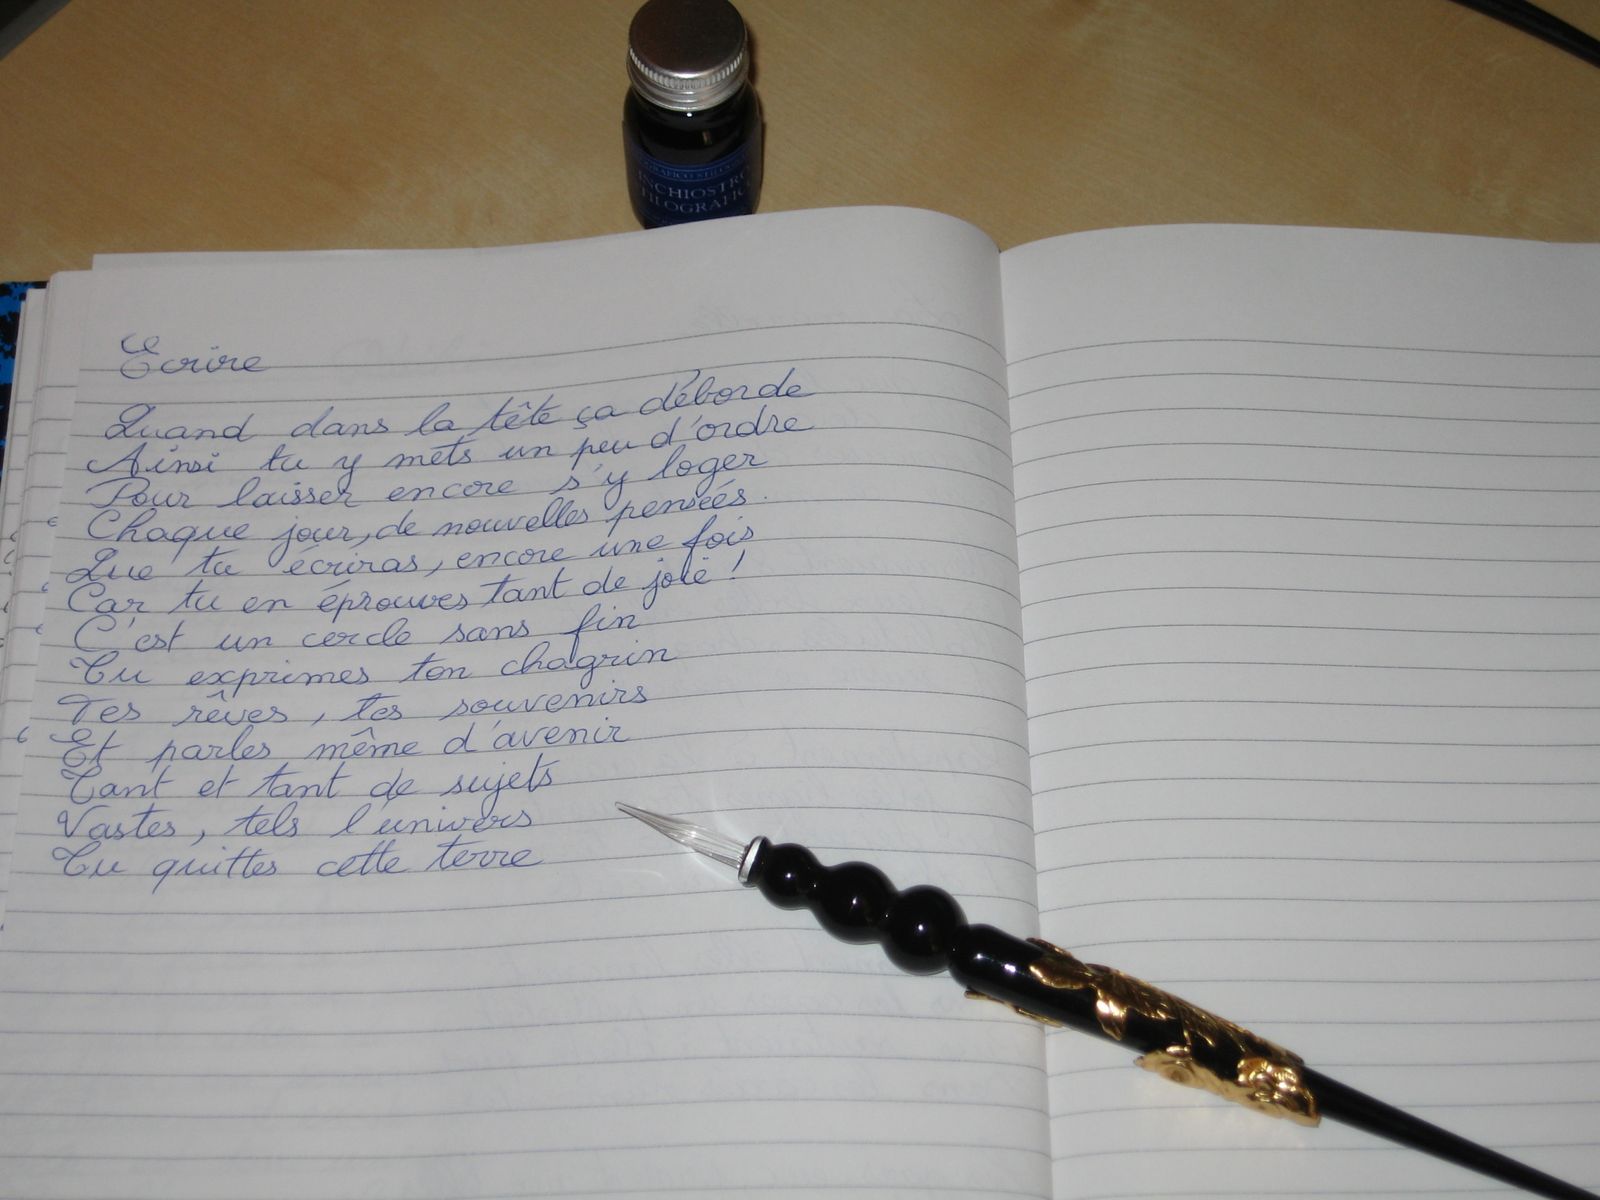 INCHIOSTRO
Ecrire
Quand dans la tête ça déborde
Ainsi tu y mets un peu d'ordre
Pour laisser encore s'y loger
Chaque jour, de nouvelles pensées.
Que tu écriras, encore une fois
Car tu en éprouves tant de joie !
C'est un cercle sans fin
Tu exprimes ton chagrin
Tes rêves, tes souvenirs
Et parles même d'avenir
Tant et tant de sujets
Vastes, tels l'univers
Tu quittes cette terre